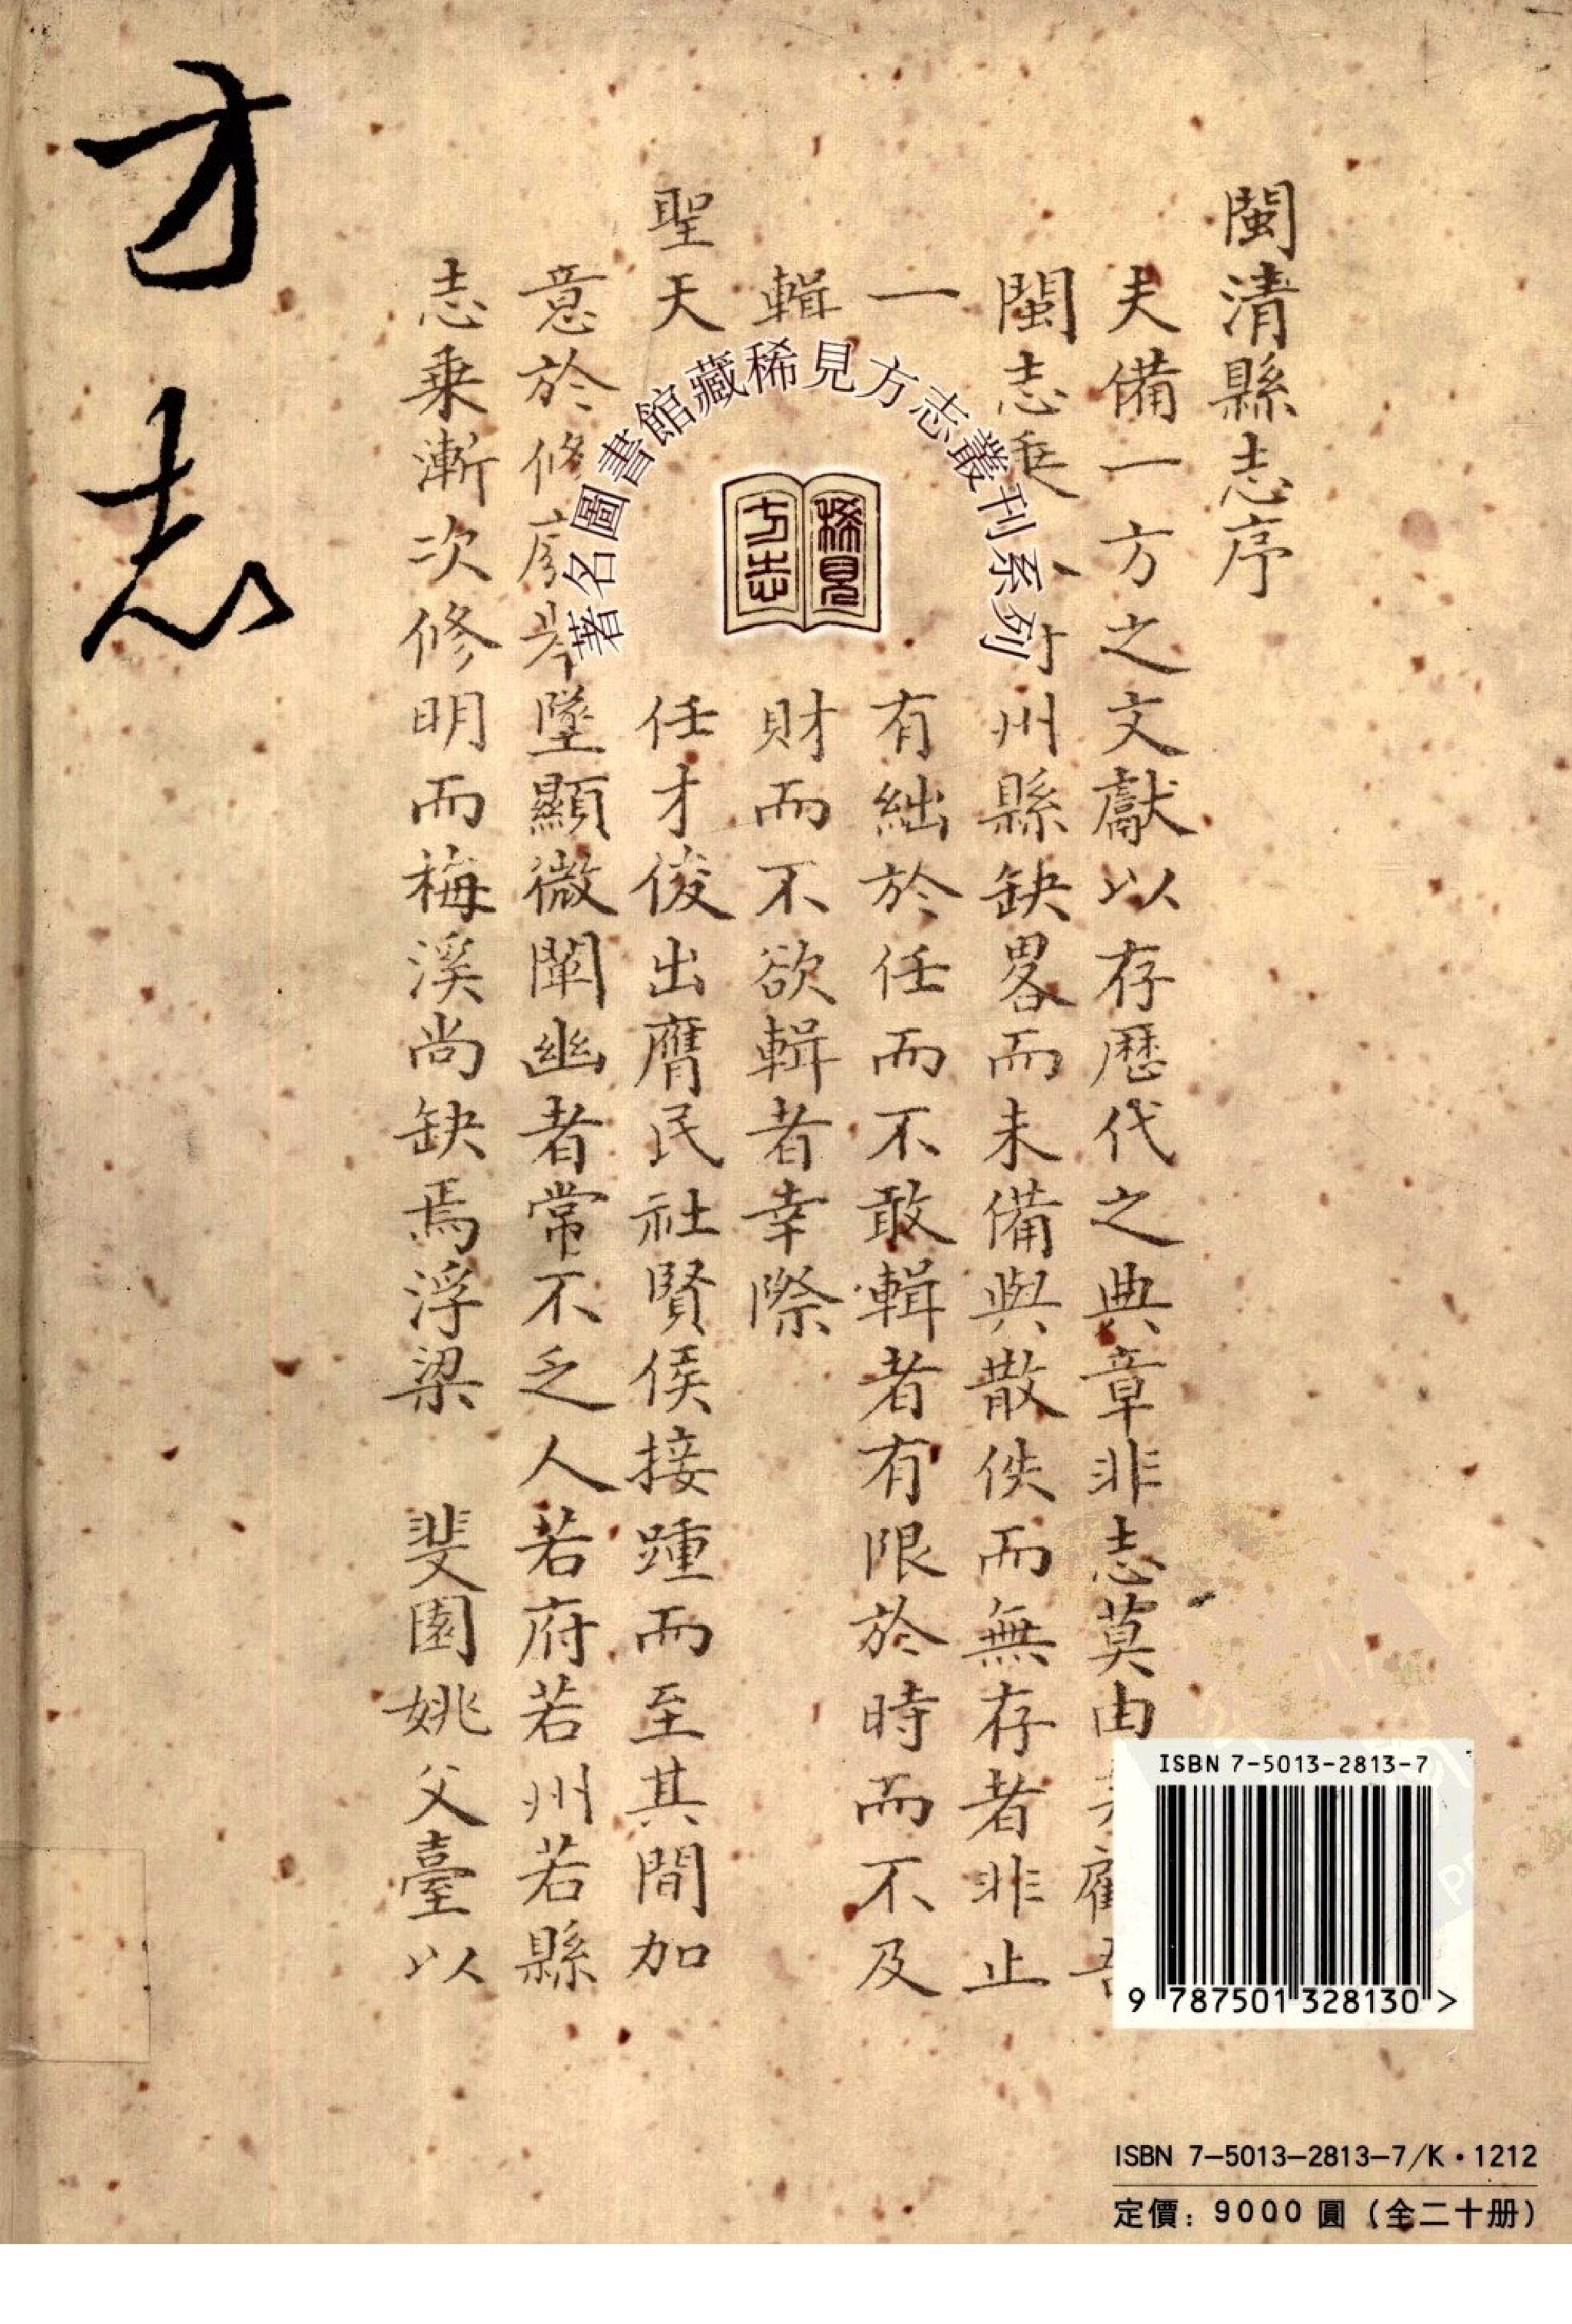 閩清縣志序
夫備一方之文獻以存歷代之典章非志莫由
閩志州縣缺畧而未備與散佚而無存者非止
一有絀於任而不敢輯者有限於時而不及
輯財而不欲輯者幸際
聖天任才俊出膺民社賢侯接踵而至其間加
意於修舉墜顯微闡幽者常不乏人若府若州若縣
志乗漸次修明而梅溪尚缺焉浮梁 斐園姚父臺以
方志
著名圖書館藏稀見方志叢刊系列
稀見方志
ISBN 7-5013-2813-7
9 787501 328130 >
ISBN 7-5013-2813-7/K·1212
定價：9000圓（全二十册）